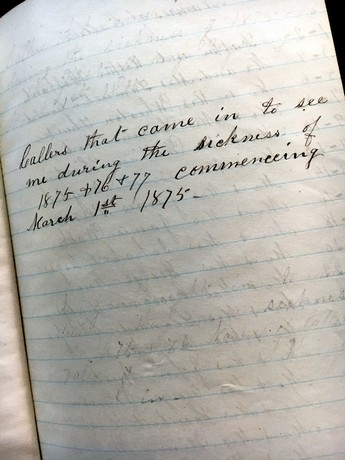 Callers that came in to see
me during the sickness of
1875 + 76 + 77 commenceing
March 1st 1875 -